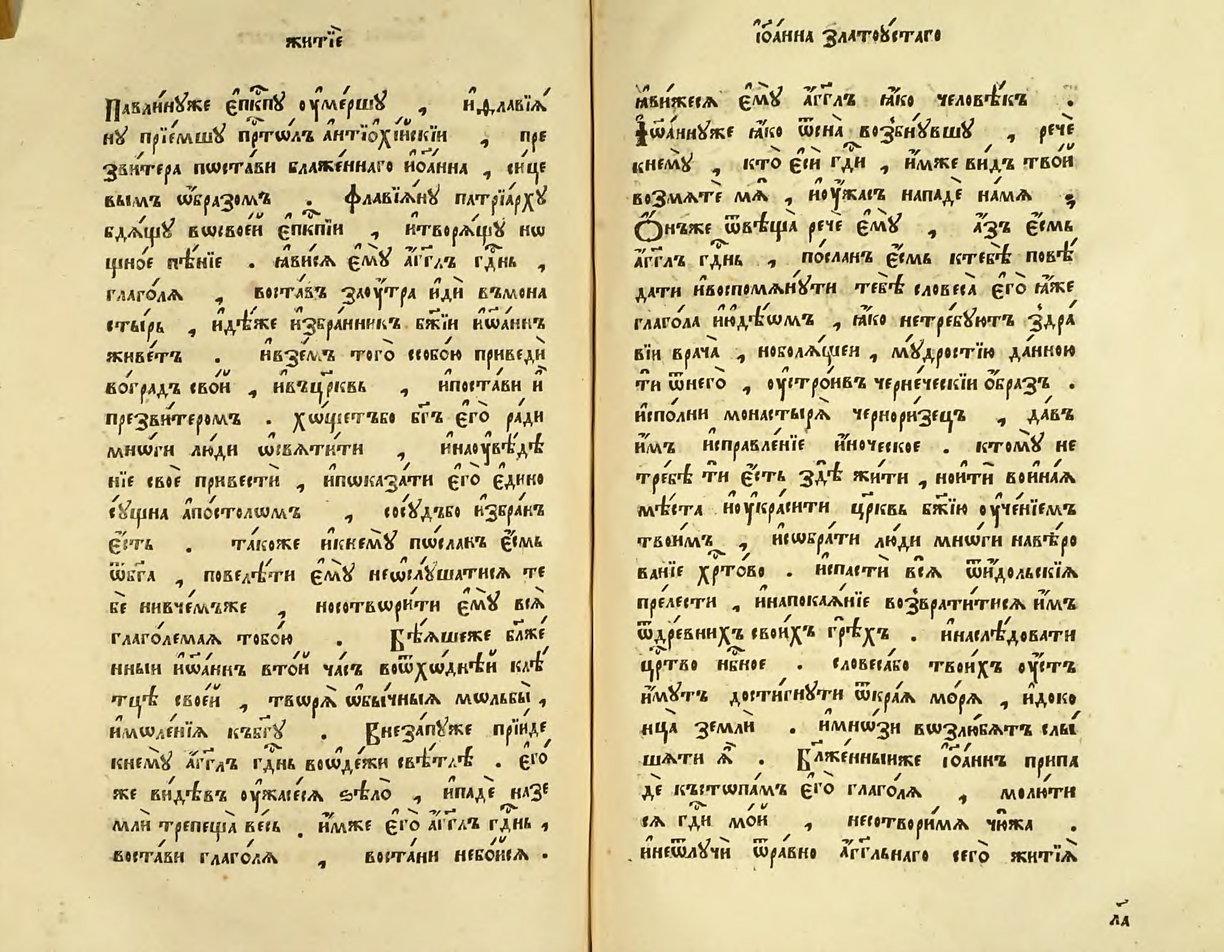 житїѐ
Паѵли́нꙋже є҆пⷭ҇кпꙋ ᲂу҆ме́ршꙋ , и҆флавїѧ́
нꙋ прїе́мшꙋ прⷭ҇то́лъ антїохі́искїи , пре
зви́тера пѡста́ви блаже́ннаго и҆ѻа́нна , си́це
вымъ ѡ҆́бразомъ . флавїѧ́нꙋ патрїа́рхꙋ
бдѧ́щꙋ вѡсвое́и є҆пⷭ҇кпїи , и҆творѧ́щꙋ нѡ
щно́е пѣ́нїе . ꙗ҆ви́сѧ є҆мꙋ̀ а҆́гг҃лъ гдⷭ҇нь ,
глаго́лѧ , воста́въ заᲂу҆́тра и҆дѝ въмона
сты́рь , и҆дѣ́же и҆збра́нникъ бж҃їи и҆ѡа́ннъ
живе́тъ . и҆взе́мъ того̀ ссобо́ю приведѝ
вогра́дъ сво́й , и҆въцр҃квь , и҆поста́ви и҆̀
презви́теромъ . хѡ́щетъбо бг҃ъ є҆го̀ ра́ди
мнѡ́ги лю́ди ѡ҆свѧти́ти , и҆наᲂу҆вѣ́дѣ
нїе своѐ привестѝ , и҆пѡказа́ти є҆го̀ є҆ди́но
сꙋ́щна а҆по́столѡмъ , сосꙋ́дъбо и҆збра́нъ
є҆́сть . та́коже и҆кнемꙋ̀ пѡ́сланъ є҆́смь
ѿбг҃а , повелѣ́ти є҆мꙋ̀ неѡ҆слꙋ́шатисѧ те
бѐ нивче́мъже , носотвѡри́ти є҆мꙋ̀ всѧ̀
глаго́лемаѧ тобо́ю . Бѣ́ѧшеже блж҃е́
нныи и҆ѡа́ннъ вто́й ча́съ воѿхѡ́днѣй клѣ́
тцѣ свое́й , творѧ̀ ѡ҆бы́чныѧ мѡльбы̀ ,
и҆мѡле́нїѧ къбг҃ꙋ . Внеза́пꙋже прїи́де
кнемꙋ̀ а҆́гг҃лъ гдⷭ҇нь воѡ҆де́жи свѣ́тлѣ . є҆го́
же ви́дѣвъ ᲂу҆жасе́сѧ ѕѣ́ло , и҆падѐ назе
млѝ трепеща̀ ве́сь . и҆́мже є҆го̀ а҆́гг҃лъ гдⷭ҇нь ,
воста́ви глаго́лѧ , воста́ни небо́йсѧ .
і҆ѻа́нна златоꙋ́стаго
ꙗ҆ви́жесѧ є҆мꙋ̀ а҆́гг҃лъ ꙗ҆́ко человѣ́къ .
І҆ѡа́ннꙋже ꙗ҆́ко ѿсна̀ возбнꙋ́вшꙋ , речѐ
кнемꙋ̀ , кто̀ є҆сѝ гдⷭ҇и , и҆́мже ви́дъ тво́й
возмѧ́те мѧ̀ , и҆ᲂу҆́жасъ нападѐ намѧ̀ ;
Ѻ҆́нъже ѿвѣща̀ речѐ є҆мꙋ̀ , а҆́зъ є҆́смь
а҆́гг҃лъ гдⷭ҇нь , по́сланъ є҆́смь ктебѣ̀ повѣ́
дати и҆воспомѧнꙋ́ти тебѣ̀ словеса̀ є҆го̀ ꙗ҆́же
глаго́ла и҆ю҆дѣ́ѡмъ , ꙗ҆́ко нетре́бꙋютъ здра́
вїи врача̀ , ноболѧ́щеи , мꙋ́дростїю да́нною
ти ѿнего̀ , ᲂу҆стро́ивъ черне́ческїи ѻ҆́бразъ .
и҆спо́лни монастырѧ̀ черноризе́цъ , да́въ
и҆́мъ и҆справле́нїе и҆́ноческое . ктомꙋ̀ не
тре́бѣ ти є҆́сть здѣ̀ жи́ти , но́йти во́йнаѧ
мѣ́ста и҆ᲂу҆краси́ти цр҃квь бж҃їю ᲂу҆че́нїемъ
твои́мъ , и҆сѡбра́ти лю́ди мнѡ́ги навѣ́ро
ванїе хрⷭ҇то́во . и҆спастѝ всѧ̀ ѿи́дольскїѧ
пре́лести , и҆напокаѧ́нїе возврати́тисѧ и҆́мъ
ѿдре́внихъ свои́хъ грѣ́хъ . и҆наслѣ́довати
црⷭ҇тво нбⷭ҇ное . словеса́бо твои́хъ ᲂу҆́стъ
и҆́мꙋтъ дости́гнꙋти ѿкра́ѧ мо́рѧ , и҆доко
нца̀ землѝ . и҆мнѡ́зи вѡзлю́бѧтъ слы́
шати ѧ҆̀ . Блаже́нныиже і҆ѻа́ннъ припа
дѐ кꙿстѡпа́мъ є҆го̀ глаго́лѧ , молю́ти
сѧ гдⷭ҇и мо́й , несотвори́мѧ чю́жа .
и҆неѿлꙋчѝ ѿра́вно а҆́гг҃льнаго сего̀ житїѧ̀
л҃а